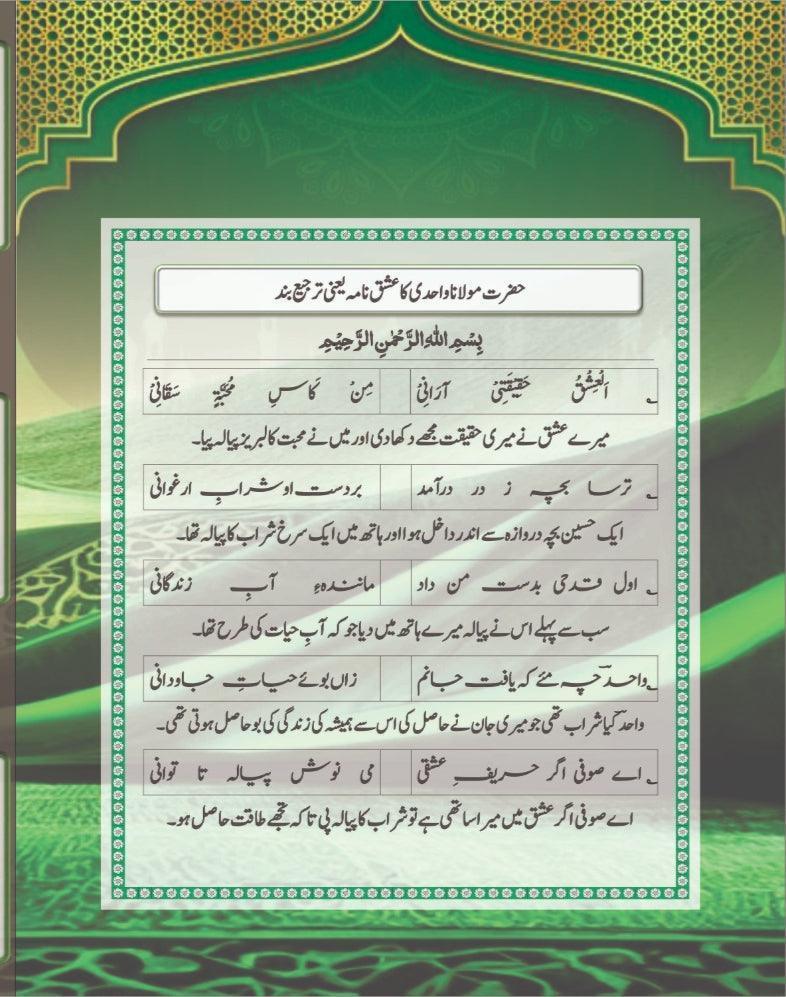 حضرت مولانا واحدی کا عشق نامہ یعنی ترجیع بند
بِسْمِ اللهِ الرَّحْمٰنِ الرَّحِيْمِ
؎ اَلْعِشْقُ حَقِيْقَتِيْ آرَانِيْ مِنْ كَاسِ مُحَبَّةٍ سَقَانِيْ
میرے عشق نے میری حقیقت مجھے دکھا دی اور میں نے محبت کا لبریز پیالہ پیا۔
؎ ترسا بچہ ز در درآمد بردست او شرابِ ارغوانی
ایک حسین بچہ دروازہ سے اندر داخل ہوا اور ہاتھ میں ایک سرخ شراب کا پیالہ تھا۔
؎ اول قدحی بدست من داد مانندہءِ آبِ زندگانی
سب سے پہلے اس نے پیالہ میرے ہاتھ میں دیا جو کہ آبِ حیات کی طرح تھا۔
؎ واحدؔ چہ مئے کہ یافت جانم زاں بوئے حیاتِ جاودانی
واحدؔ کیا شراب تھی جو میری جان نے حاصل کی اس سے ہمیشہ کی زندگی کی بو حاصل ہوتی تھی۔
؎ اے صوفی اگر حریفِ عشقی می نوش پیالہ تا توانی
اے صوفی اگر عشق میں میرا ساتھی ہے تو شراب کا پیالہ پی تاکہ تجھے طاقت حاصل ہو۔